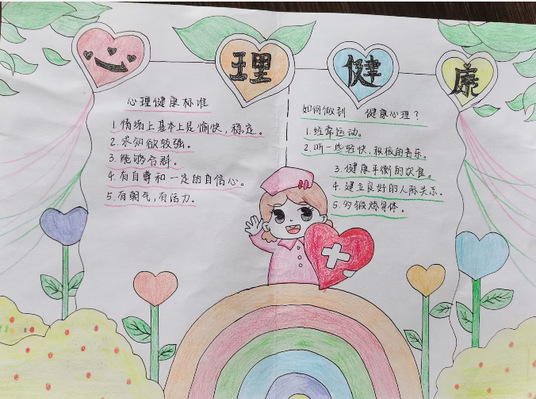 理健康
心理健康标准
1.情绪上基本上是愉快,稳定。
2.求知欲较强。
3.能够合群。
4.有自尊和一定的自信心。
5.有朝气,有活力。
如何做到 健康心理?
1.经常运动。
2.听一些轻快、积极的音乐。
3.健康平衡的饮食。
4.建立良好的人际关系。
5.多锻炼身体。